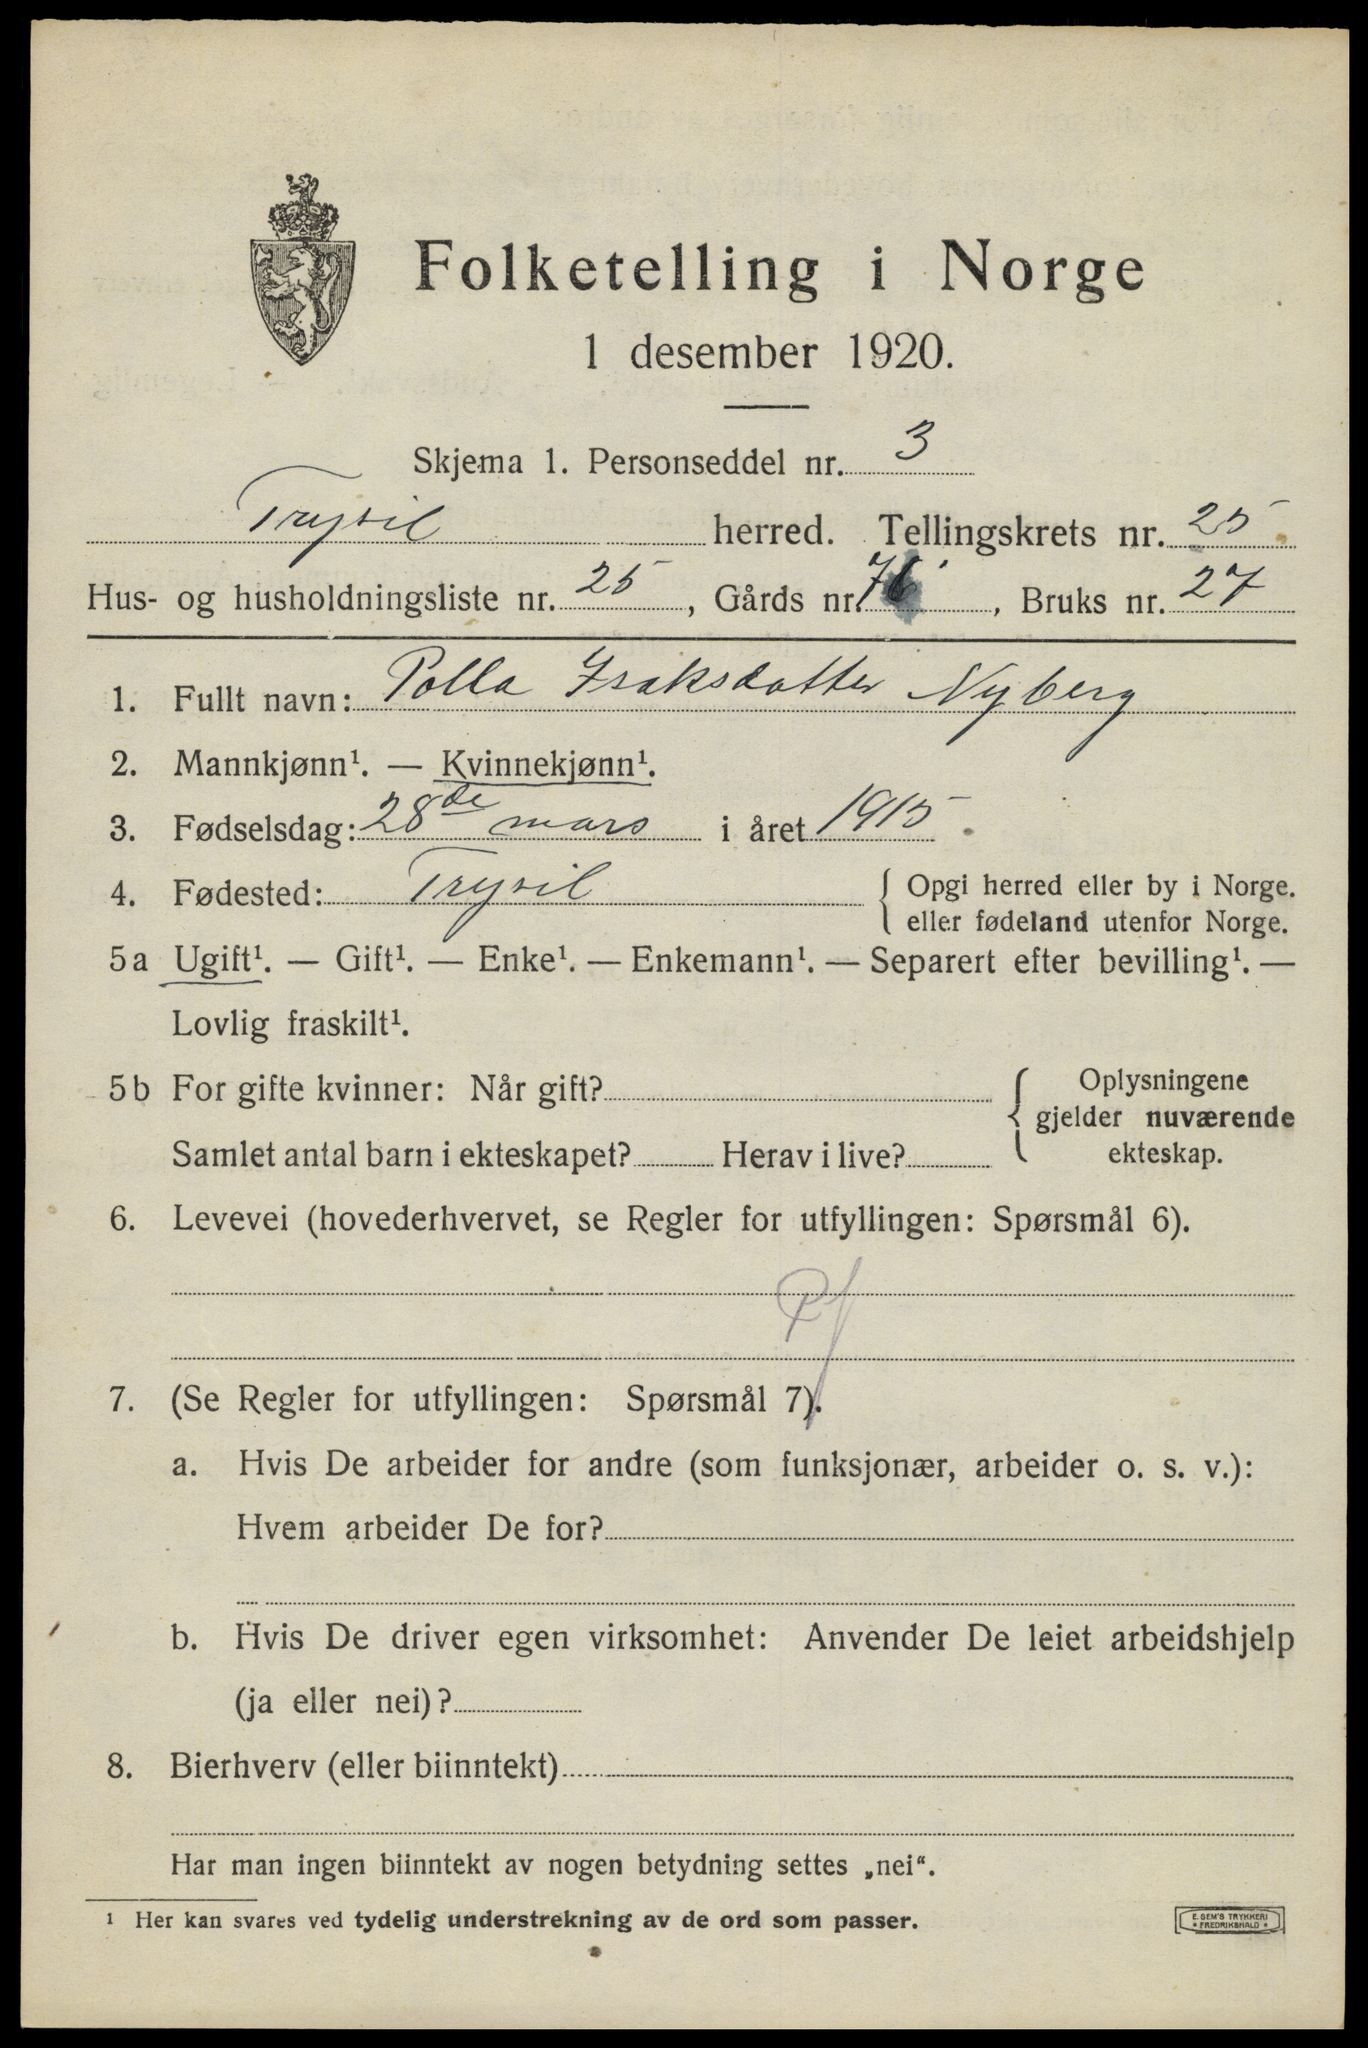 Folketelling i Norge
1 desember 1920.
Skjema 1. Personseddel nr. 3
Trysil herred. Tellingskrets nr. 25
Hus- og husholdningsliste nr. 25, Gårds nr. 76, Bruks nr. 27
1. Fullt navn: Polla Isaksdatter Nyberg
2. Mannkjønn¹. — Kvinnekjønn¹.
3. Fødselsdag: 28de mars i året 1915.
4. Fødested: Trysil { Opgi herred eller by i Norge.
eller fødeland utenfor Norge.
5a Ugift¹. — Gift¹. — Enke¹. — Enkemann¹. — Separert efter bevilling¹. —
Lovlig fraskilt¹.
5b For gifte kvinner: Når gift? { Oplysningene
gjelder nuværende
Samlet antal barn i ekteskapet? Herav i live? ekteskap.
6. Levevei (hovederhvervet, se Regler for utfyllingen: Spørsmål 6).
7. (Se Regler for utfyllingen: Spørsmål 7).
a. Hvis De arbeider for andre (som funksjonær, arbeider o. s. v.):
Hvem arbeider De for?
b. Hvis De driver egen virksomhet: Anvender De leiet arbeidshjelp
(ja eller nei)?
8. Bierhverv (eller biinntekt)
Har man ingen biinntekt av nogen betydning settes „nei“.
¹ Her kan svares ved tydelig understrekning av de ord som passer.
E. SEM'S TRYKKERI
* FREDRIKSHALD *